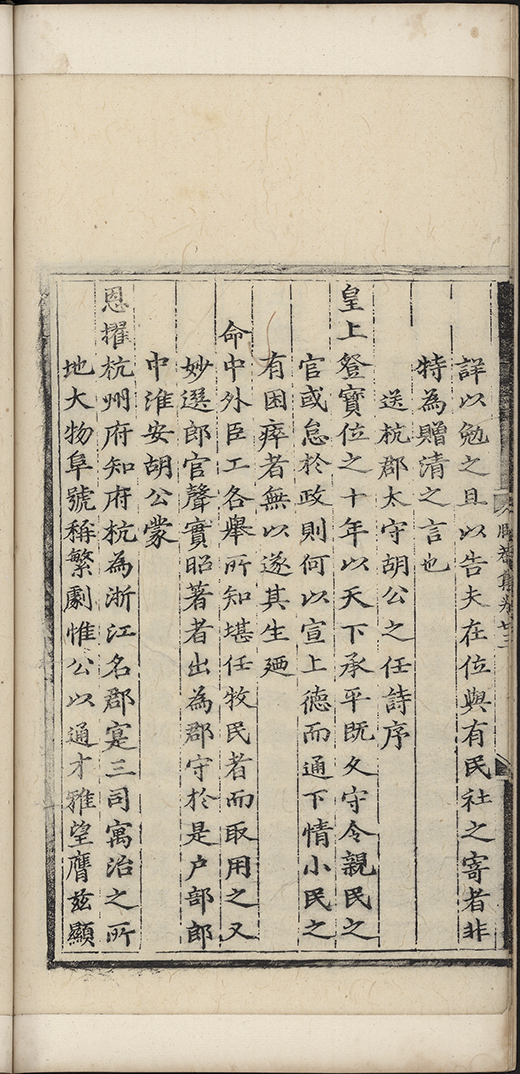 詳以勉之且以告夫在位與有民社之寄者非
特為贈清之言也
送杭郡太守胡公之任詩序
皇上登寶位之十年以天下承平既久守令親民之
官或怠於政則何以宣上德而通下情小民之
有困瘁者無以遂其生廼
命中外臣工各舉所知堪任牧民者而取用之又
妙選郎官聲實昭著者出為郡守於是户部郎
中淮安胡公蒙
恩擢杭州府知府杭為浙江名郡寔三司寓治之所
地大物阜號稱繁劇惟公以通才雅望膺茲顯